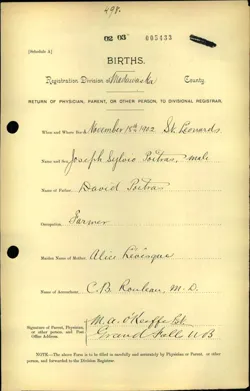 498.
02 03 005433
[Schedule A]
BIRTHS.
Registration Division of Madawaska County.
RETURN OF PHYSICIAN, PARENT, OR OTHER PERSON, TO DIVISIONAL REGISTRAR.
When and Where Born, November 18th 1902 St. Leonards
Name and Sex, Joseph Sylvio Poitras, male
Name of Father, David Poitras
Occupation, Farmer
Maiden Name of Mother, Alice Levisque
Name of Accoucheur, C.B. Rouleau, M.D.
Signature of Parent, Physician, or other person and Post Office Address. M.A. O'Keeffe
Grand Fall N B
NOTE.—The above Form is to be filled in carefully and accurately by Physician or Parent, or other person, and forwarded to the Division Registrar.